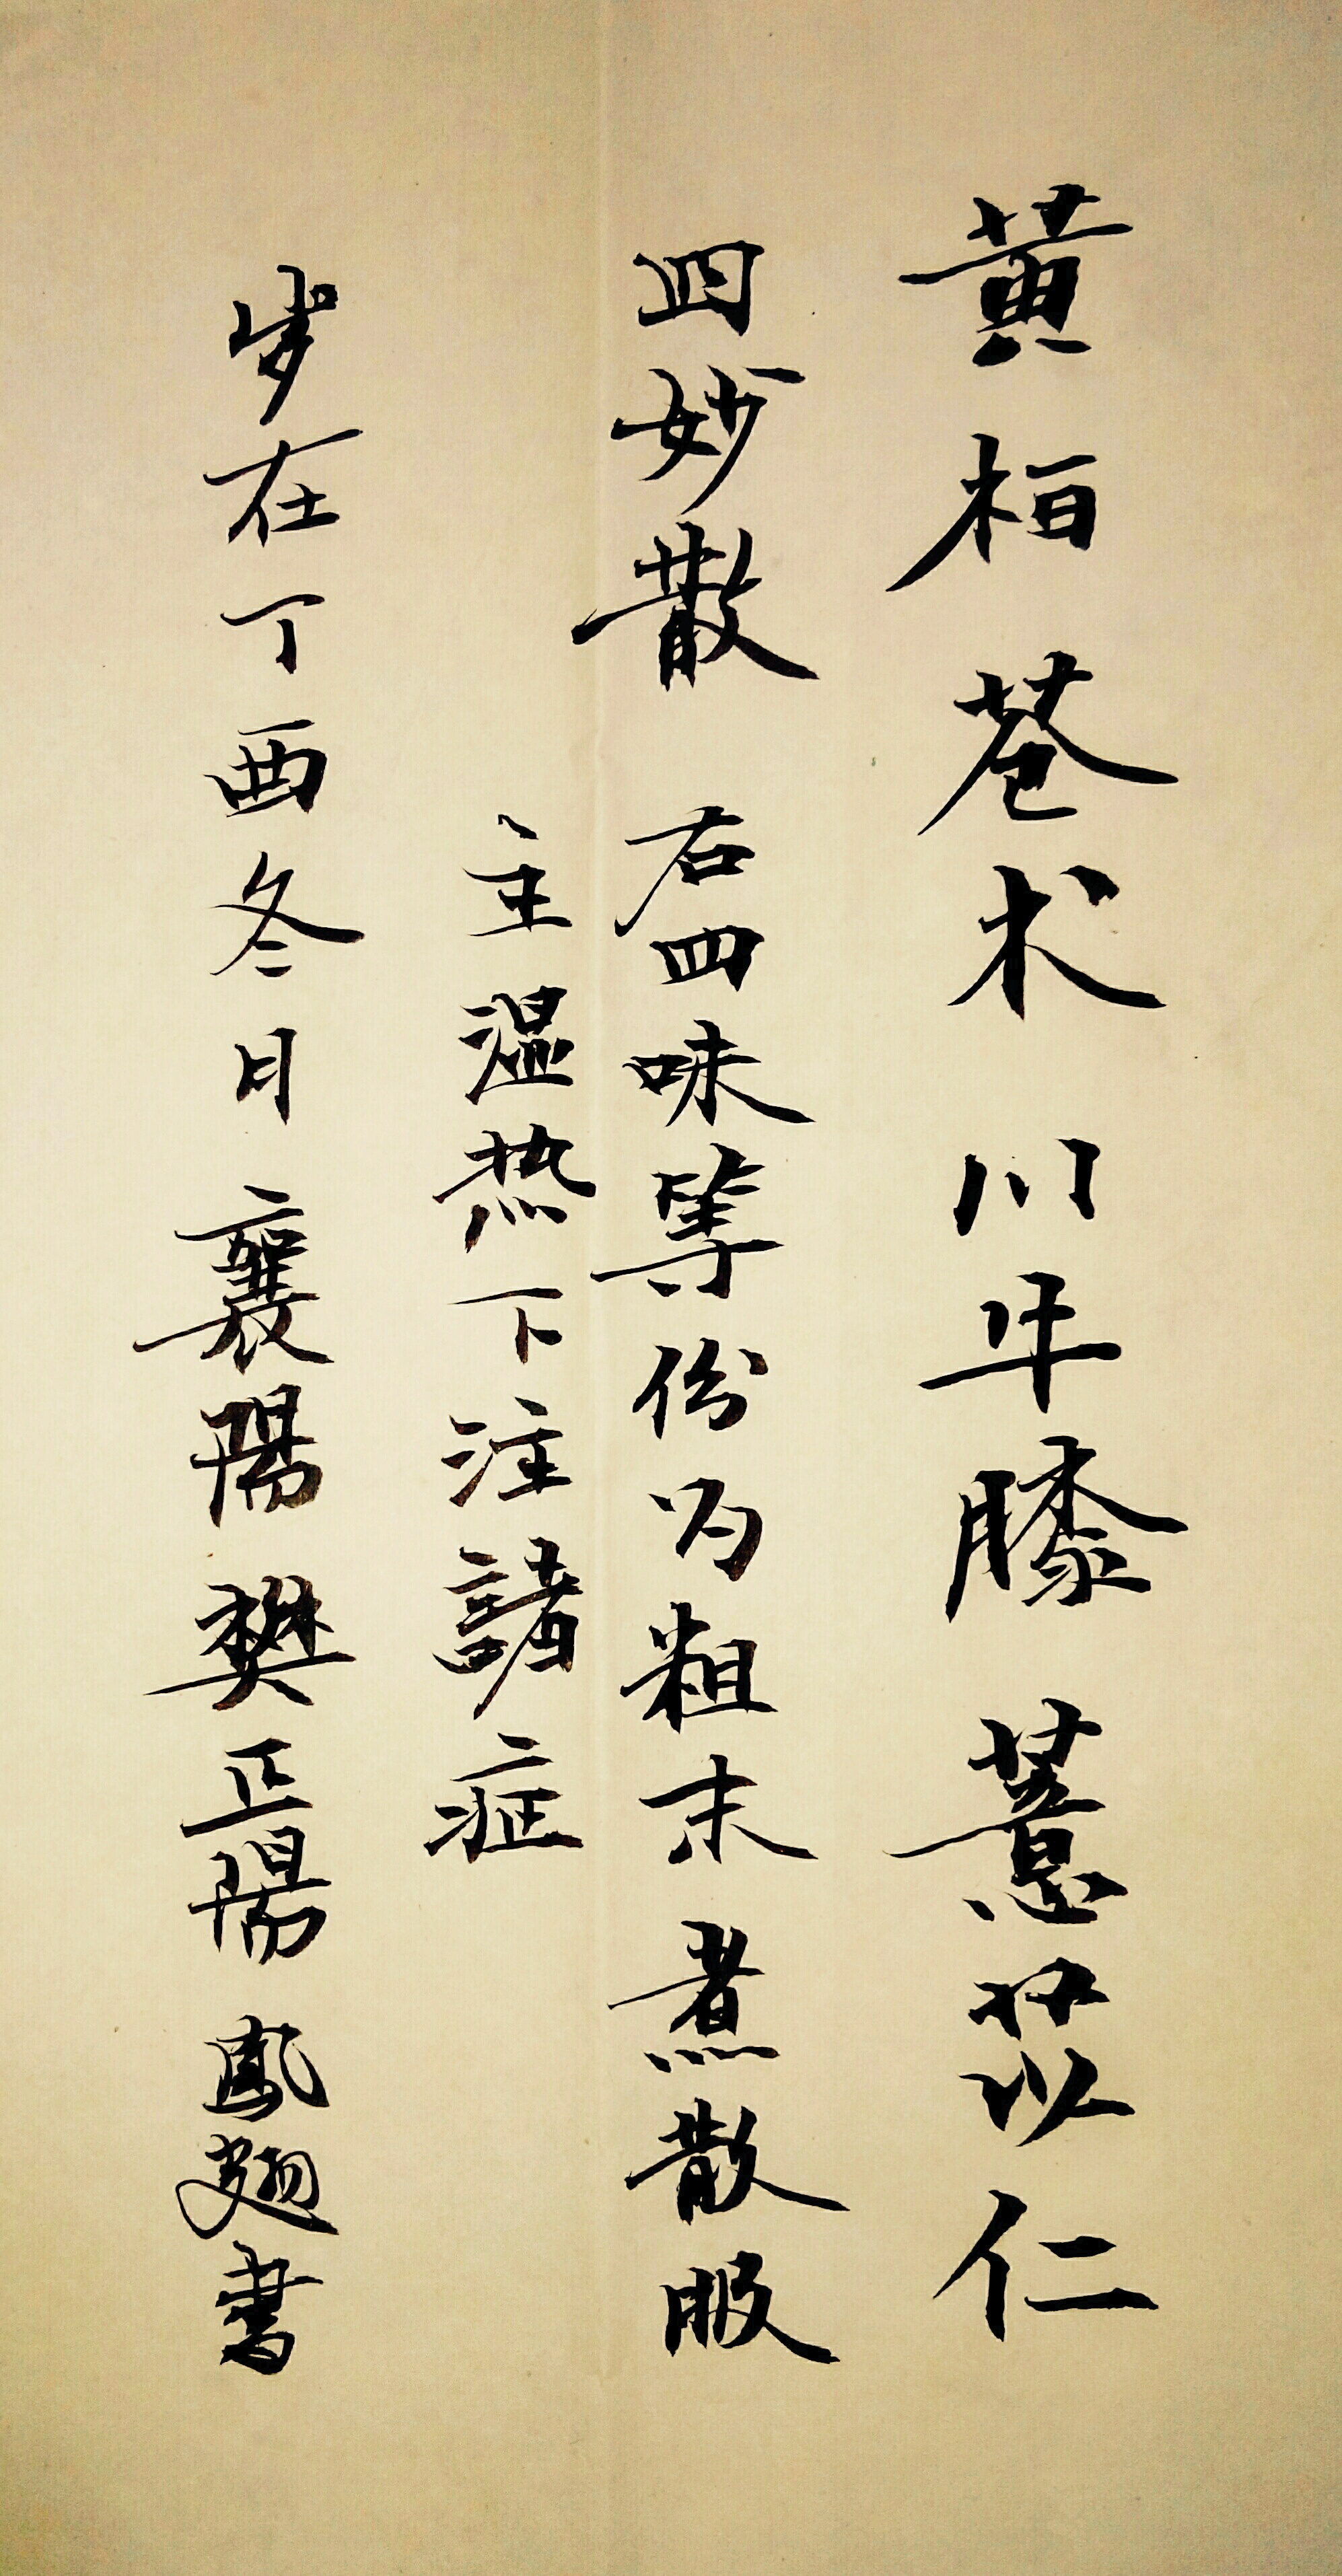 黄栢苍术川牛膝薏苡仁
四妙散 右四味等份为粗末煮散服
主温热下注諸症
岁在丁酉冬日襄陽樊正陽鳳翅書